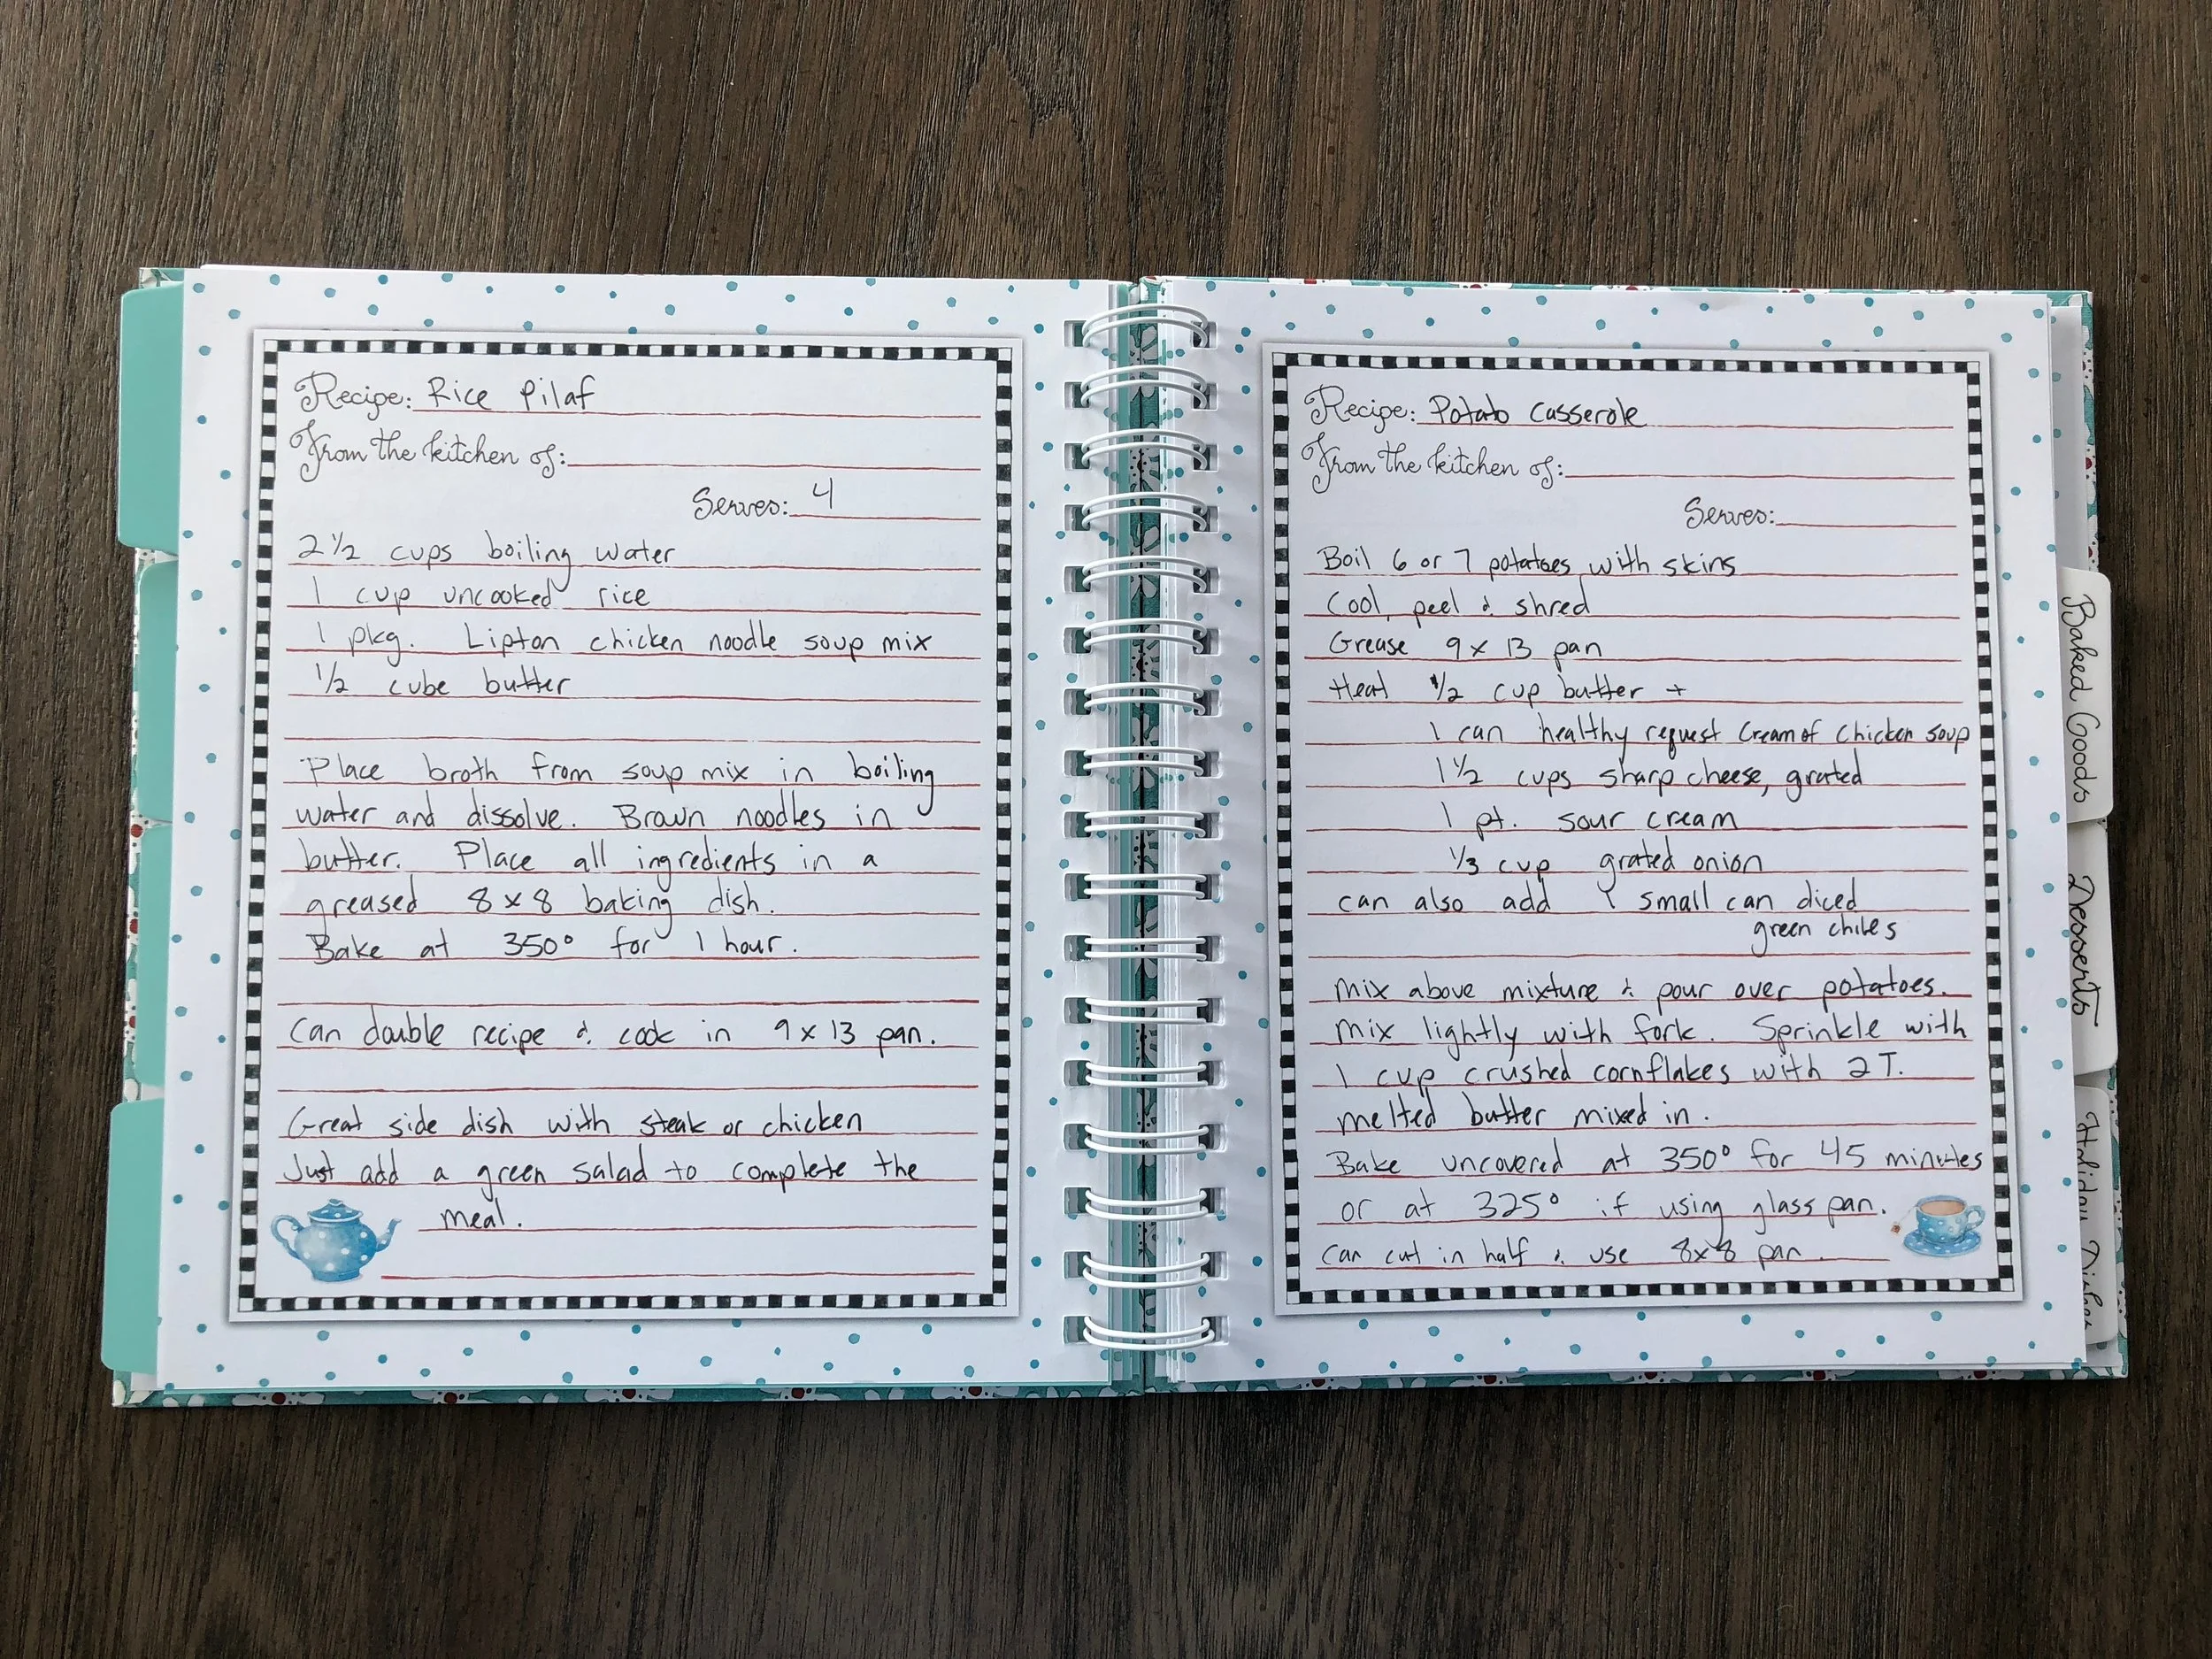 Recipe: Rice Pilaf
From the kitchen of:
Serves: 4
2 1/2 cups boiling water
1 cup uncooked rice
1 pkg. Lipton chicken noodle soup mix
1/2 cube butter
Place broth from soup mix in boiling
water and dissolve. Brown noodles in
butter. Place all ingredients in a
greased 8x8 baking dish.
Bake at 350° for 1 hour.
Can double recipe & cook in 9x13 pan.
Great side dish with steak or chicken
Just add a green salad to complete the
meal.
Recipe: Potato Casserole
From the kitchen of:
Serves:
Boil 6 or 7 potatoes with skins
Cool, peel & shred
Grease 9x13 pan
Heat 1/2 cup butter +
1 can healthy request Cream of Chicken soup
1 1/2 cups sharp cheese, grated
1 pt. sour cream
1/3 cup grated onion
can also add 1 small can diced
green chiles
mix above mixture & pour over potatoes.
mix lightly with fork. Sprinkle with
1 cup crushed cornflakes with 2 T.
melted butter mixed in.
Bake uncovered at 350° for 45 minutes
or at 325° if using glass pan.
Can cut in half & use 8x8 pan.
Baked Goods
Desserts
Holiday Dishes